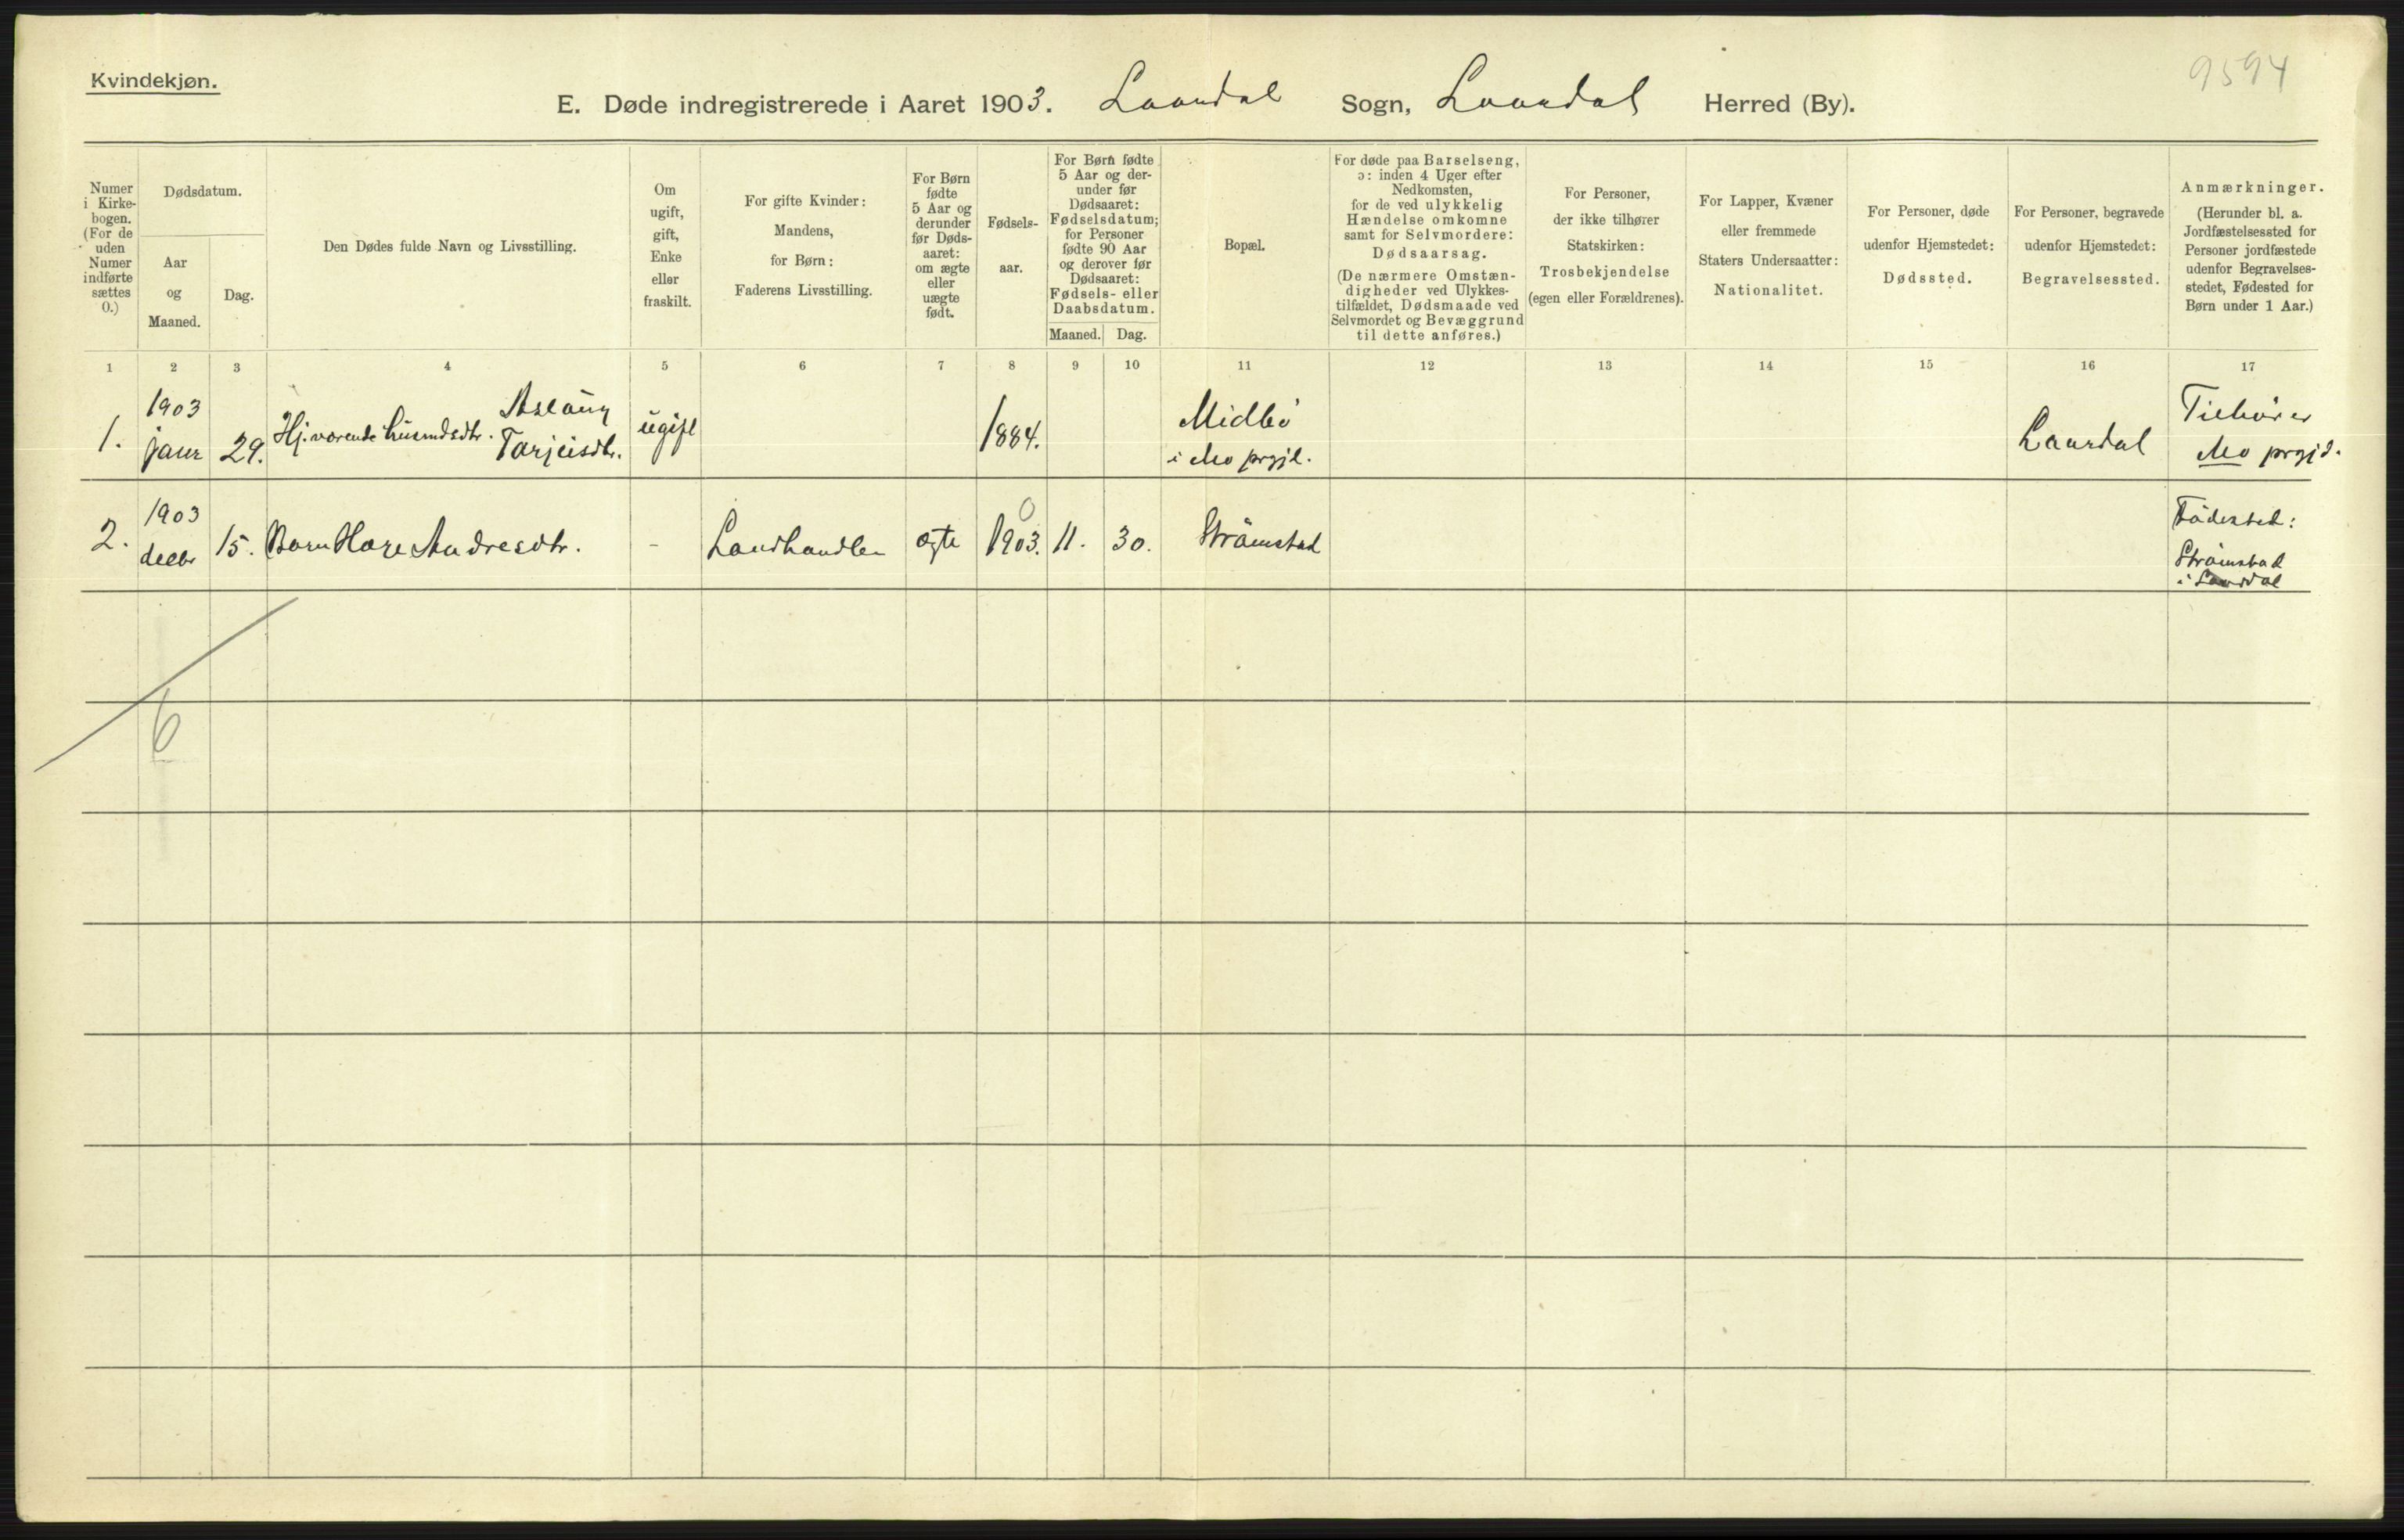 Kvindekjøn.
9594
E. Døde indregistrerede i Aaret 1903. Laurdal Sogn, Laurdal Herred (By).
Numer
i Kirke-
bogen.
(For de
uden
Numer
indførte
sættes
0.)
Dødsdatum.
Aar
og
Maaned.
Dag.
Den Dødes fulde Navn og Livsstilling.
Om
ugift,
gift,
Enke
eller
fraskilt.
For gifte Kvinder:
Mandens,
for Børn:
Faderens Livsstilling.
For Børn
fødte
5 Aar og
derunder
før Døds-
aaret:
om ægte
eller
uægte
født.
Fødsels-
aar.
For Børn fødte
5 Aar og der-
under før
Dødsaaret:
Fødselsdatum;
for Personer
fødte 90 Aar
og derover før
Dødsaaret:
Fødsels- eller
Daabsdatum.
Maaned. Dag.
Bopæl.
For døde paa Barselseng,
ɔ: inden 4 Uger efter
Nedkomsten,
for de ved ulykkelig
Hændelse omkomne
samt for Selvmordere:
Dødsaarsag.
(De nærmere Omstæn-
digheder ved Ulykkes-
tilfældet, Dødsmaade ved
Selvmordet og Bevæggrund
til dette anføres.)
For Personer,
der ikke tilhører
Statskirken:
Trosbekjendelse
(egen eller Forældrenes).
For Lapper, Kvæner
eller fremmede
Staters Undersaatter:
Nationalitet.
For Personer, døde
udenfor Hjemstedet:
Dødssted.
For Personer, begravede
udenfor Hjemstedet:
Begravelsessted.
Anmærkninger.
(Herunder bl. a.
Jordfæstelsessted for
Personer jordfæstede
udenfor Begravelses-
stedet, Fødested for
Børn under 1 Aar.)
1 2 3 4 5 6 7 8 9 10 11 12 13 14 15 16 17
1.
1903
janr
29.
Hj.værende husmdsdtr. Aslaug
Tarjeisdtr.
ugift
1884.
Midbö
i Mo prgjl.
Laurdal
Tilhörer
Mo prgjd.
2.
1903
decbr
15.
Barn Hæge Andresdtr.
-
Landhandler
ægte
0
1903.
11.
30.
Strömstad
Födested:
Strömstad
i Laurdal
6